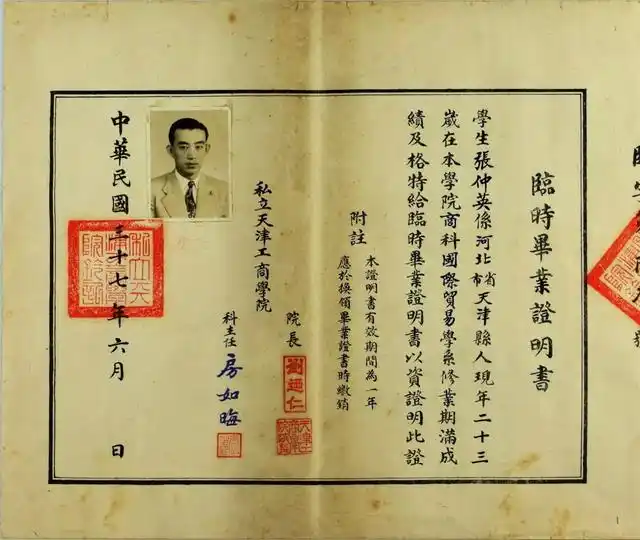 臨時畢業證明書
學生張仲英係河北省市天津縣人現年二十三
歲在本學院商科國際貿易學系修業期滿成
績及格特給臨時畢業證明書以資證明此證
附註
本證明書有效期間為一年
應於換領畢業證書時繳銷
私立天津工商學院
院長
劉迺仁
科主任
房如晦
中華民國三十七年六月　日